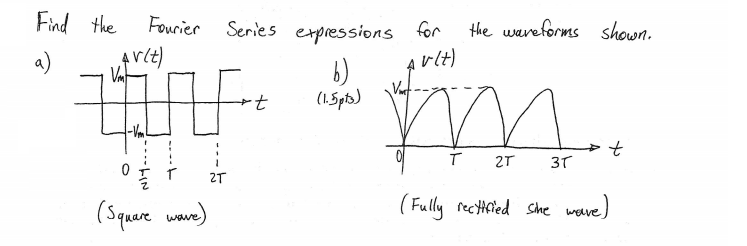 Find the Fourier Series expressions for the waveforms shown.
a) v(t) b) v(t)
Vm (1.5pts) Vm
t
-Vm t
0 T/2 T 2T 0 T 2T 3T
(Square wave) (Fully rectified sine wave)